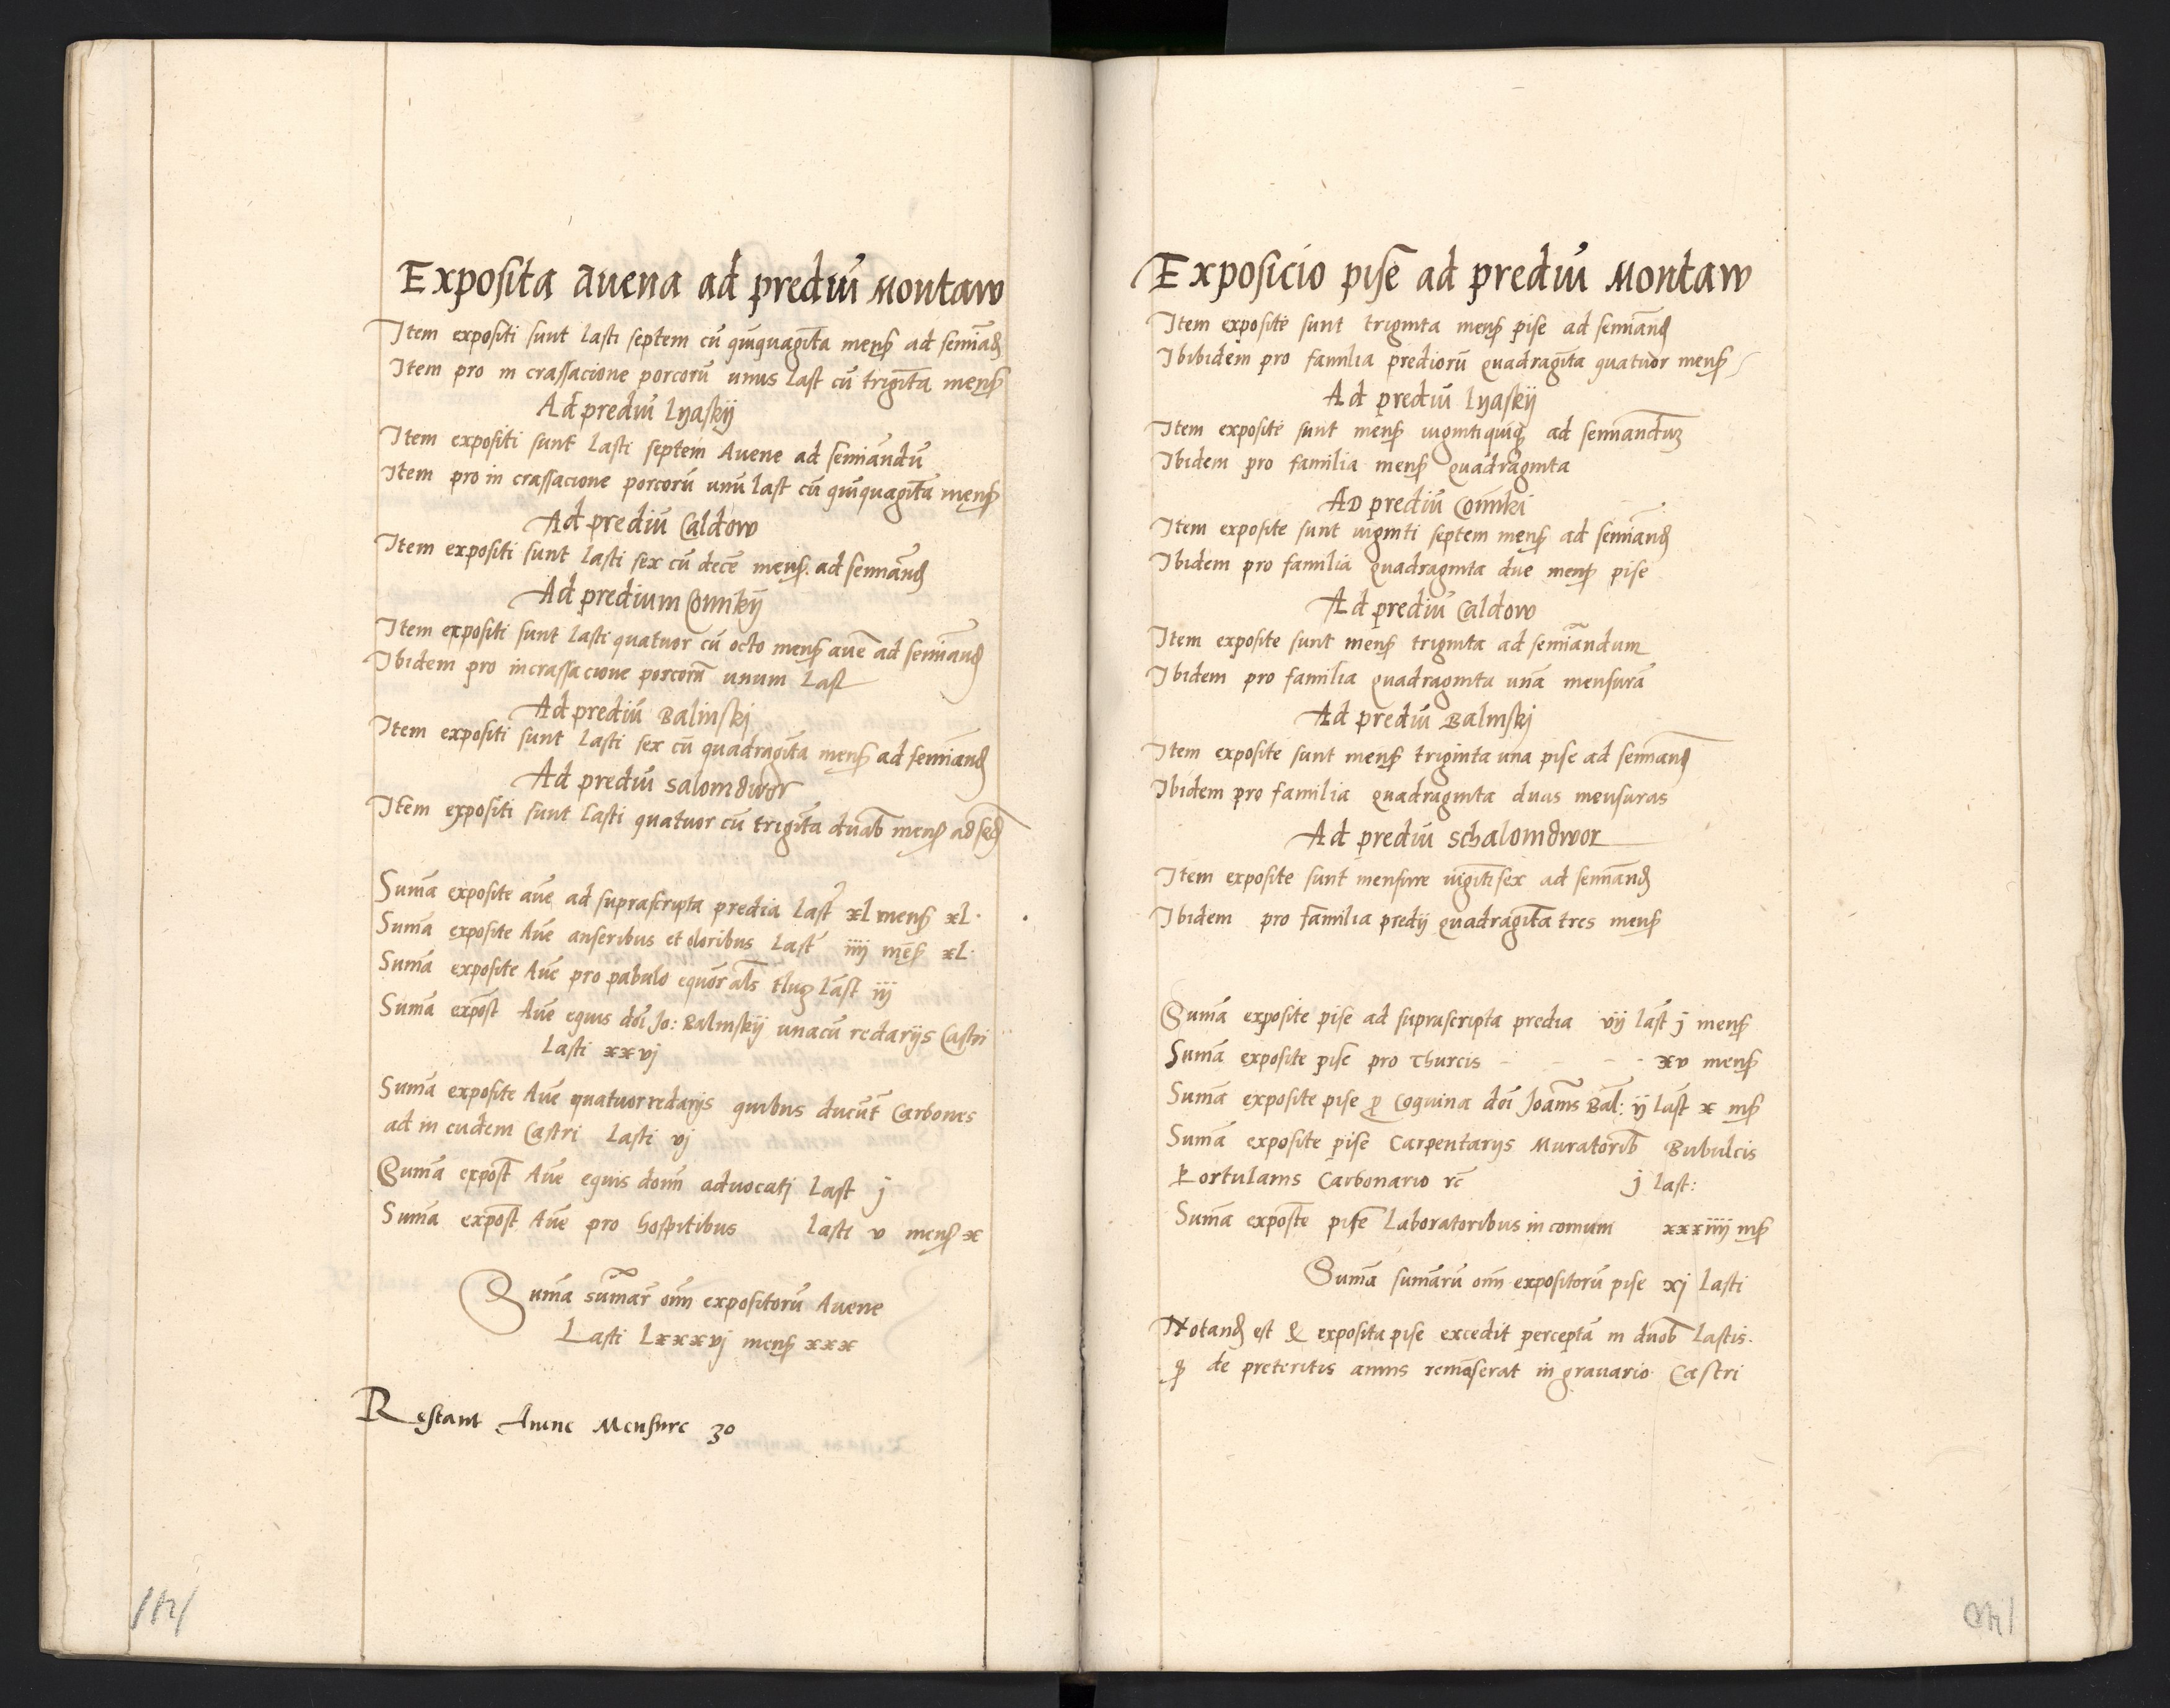 Exposita Avena ad prediū Montaw
Item expositi sunt lasti septem cū quīquagīta mens ad semīad
Item pro in crassacione porcorū unus last cū trigīta mens
Ad prediū lyaskij
Item expositi sunt lasti septem Avene ad semiandū
Item pro in crassacione porcorū unū last cū quīquagīta mens
Ad prediū Caldow
Item expositi sunt lasti sex cū decē mens. ad semīand
Ad predium Comkij
Item expositi sunt lasti quatuor cū octo mens avē ad semīand
Ibidem pro incrassacione porcorū unum last
Ad prediū Balinskj
Item expositi sunt lasti sex cū quadragīta mens ad semīand
Ad prediū salomdwor
Item expositi sunt lasti quatuor cū trigīta duab mens ad
Sumā exposite avē ad suprascripta predia last xl mens xl.
Sumā exposite Avē anseribus et oloribus last iiij mēs xl.
Sumā exposite Avē pro pabulo equor als last iij
Sumā expost Avē equis doī Jo: Balinskij unacū redarijs Castri
lasti xxvj
Sumā exposite Avē quatuor redarijs quibus ducūt Carbones
ad in cudem Castri lasti vj
Sumā expost Avē equis domī advocatj last j
Sumā expost Avē pro hospitibus lasti v mens x
Sumā sumar omī expositorū Avene
Lasti Lxxxvj mens xxx
Restant Avene Mensure 30
Exposicio pisē ad prediū Montaw
Item exposite sunt triginta mens pise ad semīand
Ibibidem pro familia prediorū quadragīta quatuor mens
Ad prediū lyaskij
Item exposite sunt mens vigintiquīq ad semīandum
Ibidem pro familia mens quadraginta
AD prediū Comki
Item exposite sunt viginti septem mens ad semīand
Ibidem pro familia quadraginta due mens pise
Ad prediū Caldow
Item exposite sunt mens triginta ad semīandum
Ibidem pro familia quadraginta unā mensurā
Ad prediū Balinskj
Item exposite sunt mens triginta una pise ad semīand
Ibidem pro familia quadraginta duas mensuras
Ad prediū schalomdwor
Item exposite sunt mensure vigītisex ad semīand
Ibidem pro familia predij quadragīta tres mens
Sumā exposite pise ad suprascripta predia vij last j mens
Sumā exposite pise pro Thurcis - - - xv mens
Sumā exposite pise p Coquina doī Joānis Bal: ij last x ms
Sumā exposite pise Carpentarijs Muratorib Bubulcis
Hortulanis Carbonario rc j last:
Sumā exposte pise Laboratoribus in comuni xxxiiij ms
Sumā sumarū omī expositorū pise xj lasti
Notand est q exposita pise excedit perceptā in duob lastis.
q de preteritis annis remāserat in granario Castri